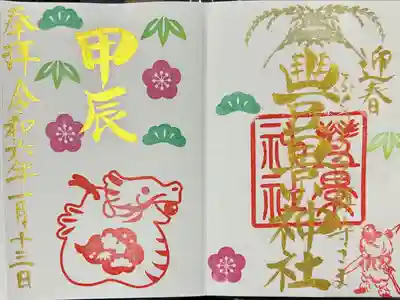 迎春
豊景神社
甲辰
奉拝 令和六年一月十三日